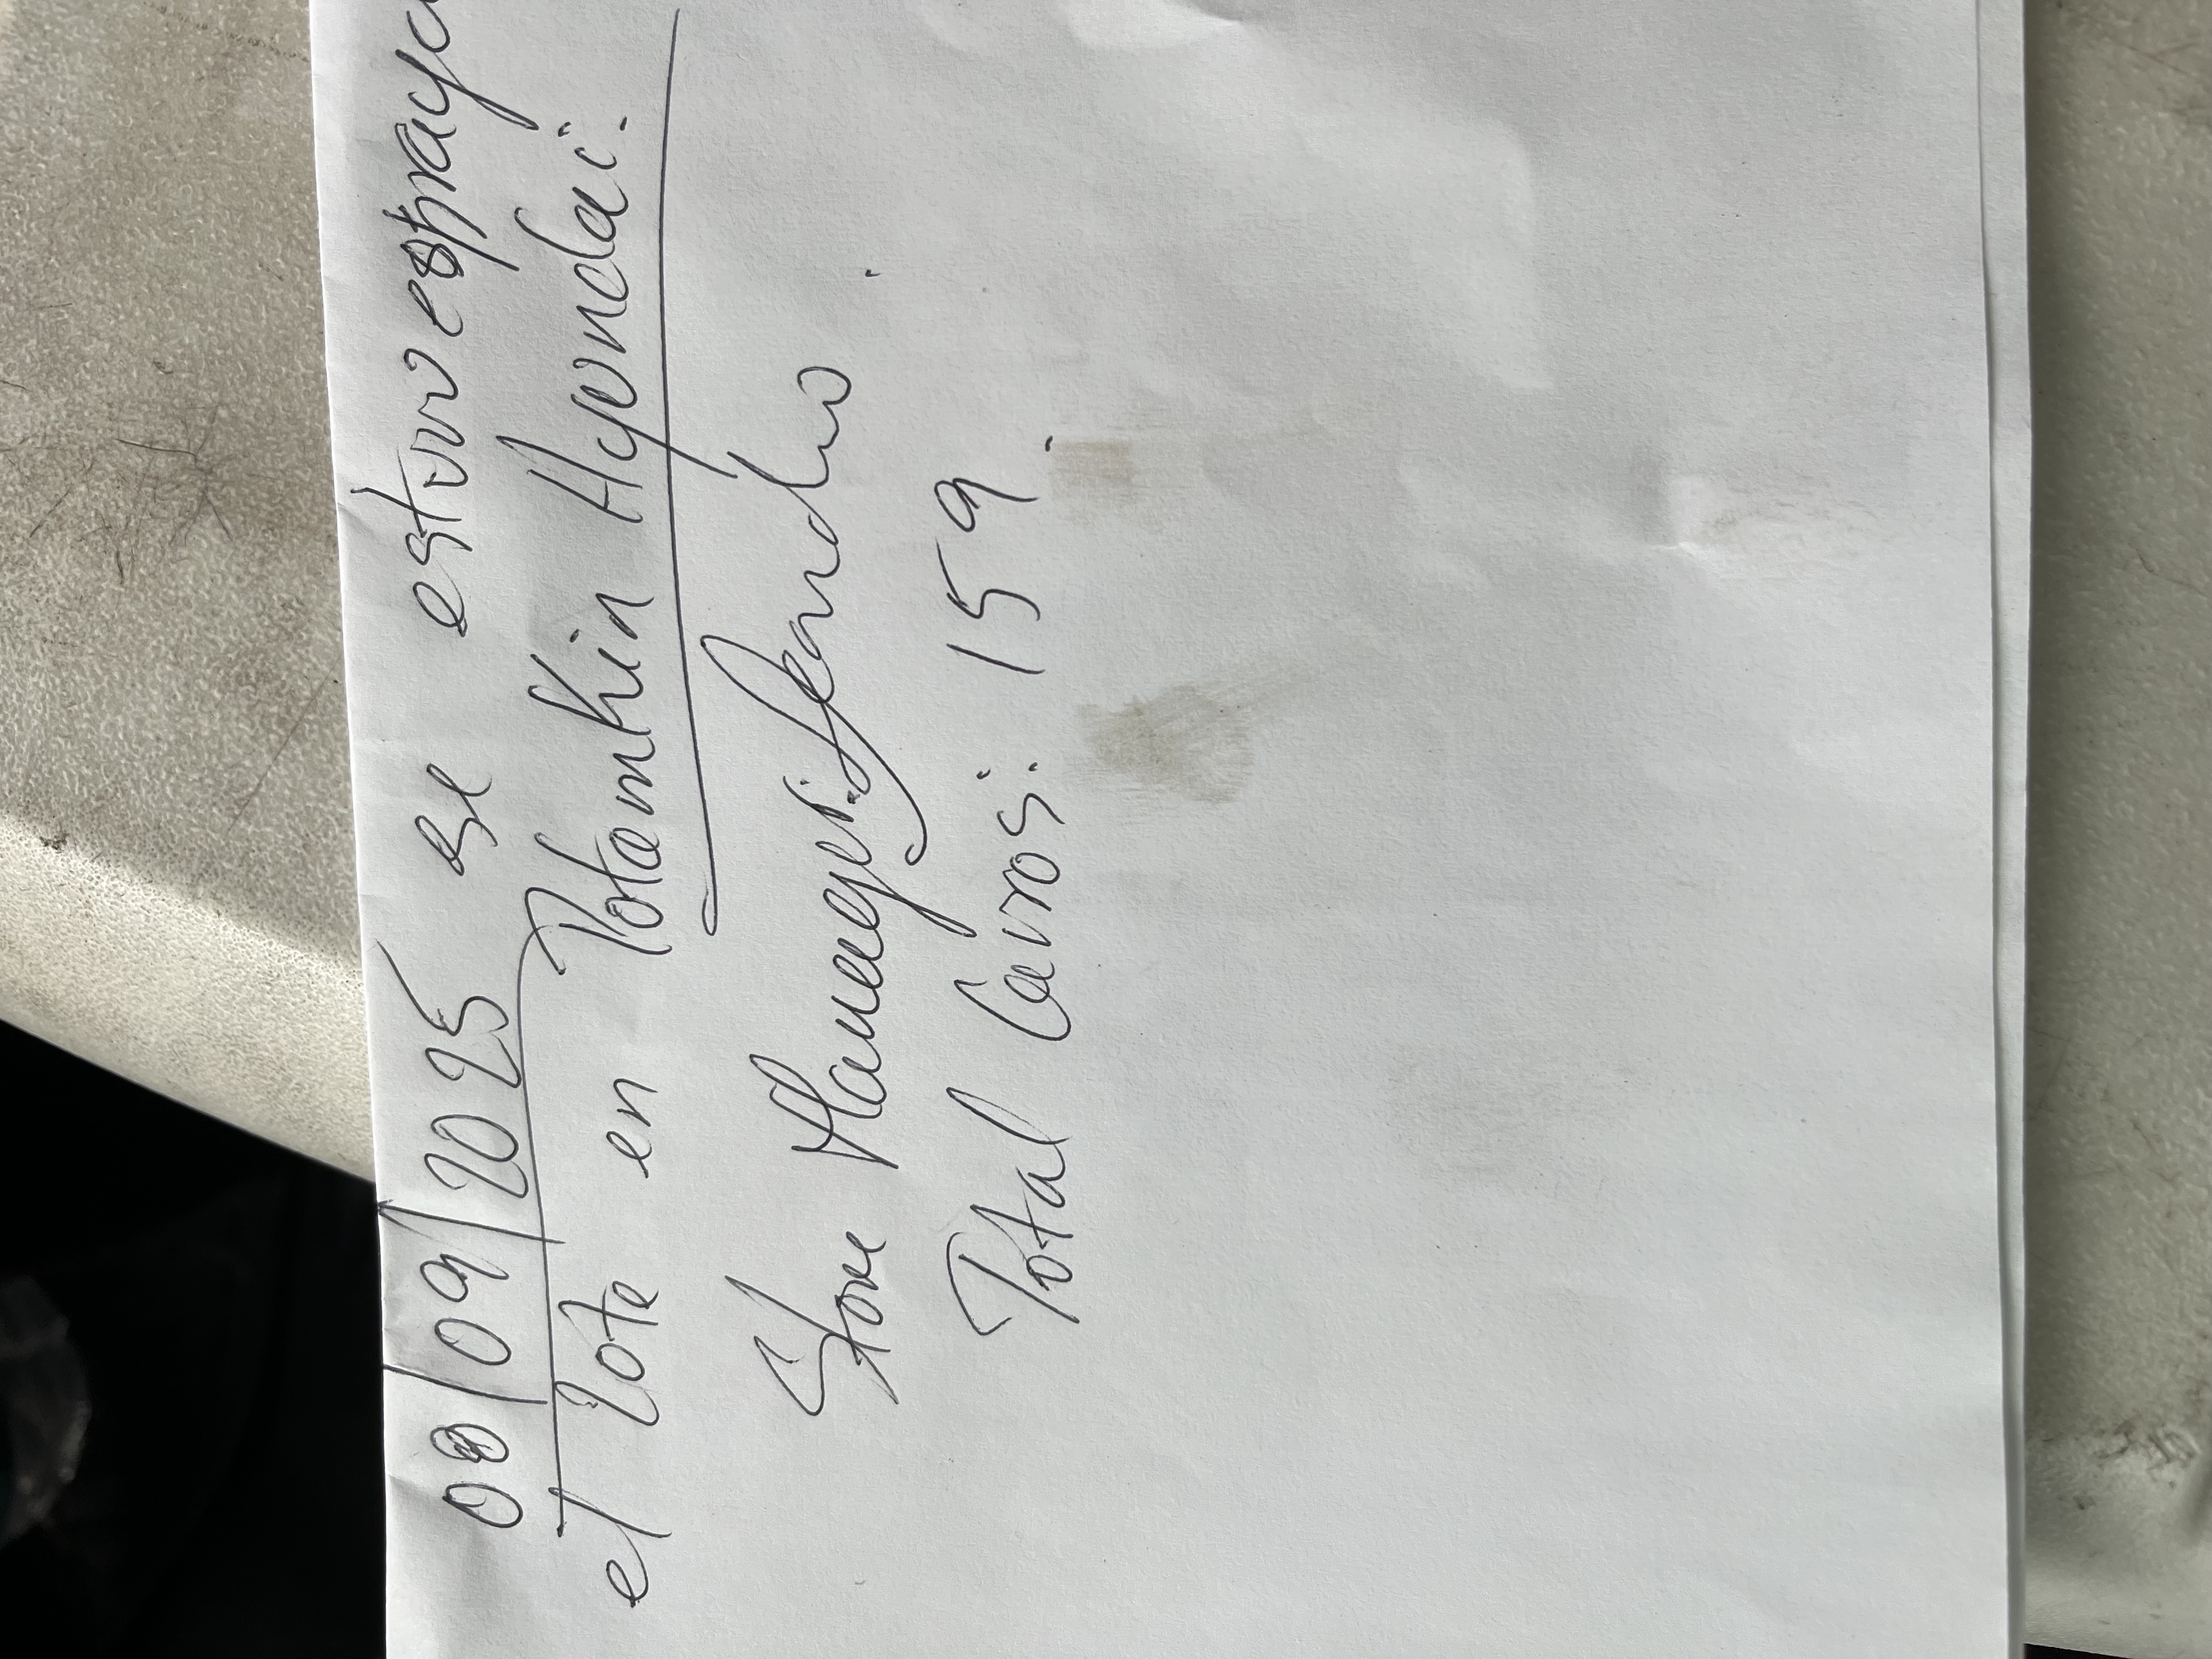 08/09/2025 se estuvo espraya
el lote en Potamkin Hyundai.
Store Manager: Leandro.
Total Carros: 159.